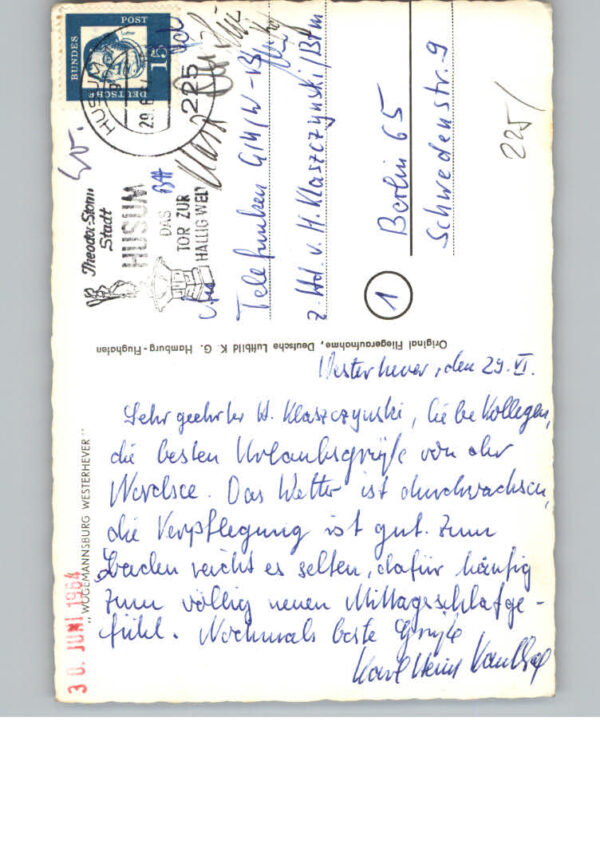 Westerhever, den 29. VI.
Sehr geehrter H. Klaszczynski, liebe Kollegen,
die besten Urlaubsgrüße von der
Nordsee. Das Wetter ist durchwachsen,
die Verpflegung ist gut. Zum
Baden reicht es selten, dafür häufig
zum völlig neuen Mittagsschlafge-
fühl. Nochmals beste Grüße
Karl Heinz
Telefunken G14/W-VB
z. Hd v. H. Klaszczynski/Btm
1
Berlin 65
Schwedenstr. 9
225/
DEUTSCHE
BUNDES
POST
15
HUSUM
29.6.
225
Theodor-Storm-
Stadt
HUSUM
DAS
TOR ZUR
HALLIG WELT
Original Fliegeraufnahme, Deutsche Luftbild K. G. Hamburg-Flughafen
"WOGEMANNSBURG WESTERHEVER"
30. JUNI 1964